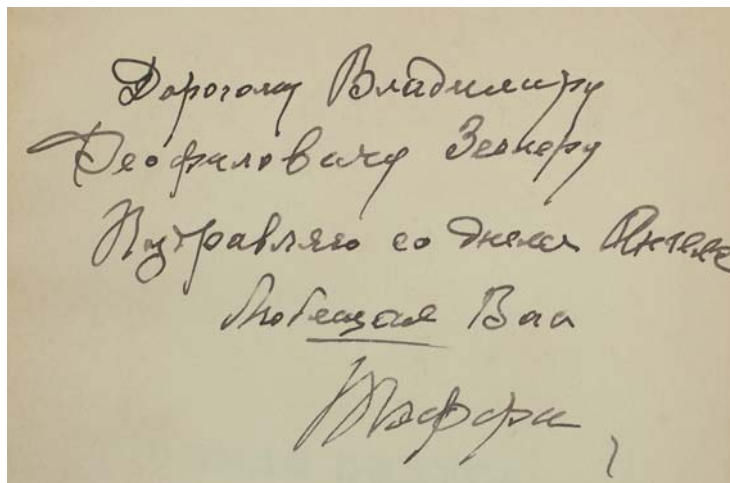 Дорогому Владимиру
Феофиловичу Зеелеру
Поздравляю со днем Ангела
Любящая Вас
Тэффи